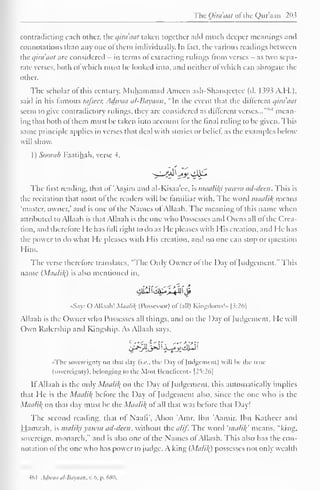 The Qira'aat of the Qur'aan 203
contradicting each other, the qira'aat taken together add much deeper meanings and
connotations than any one of them individually. In fact, the various readings between
the qira'aat are considered – in terms of extracting rulings from verses – as two sepa-
rate verses, both of which must be looked into, and neither of which can abrogate the
other.
The scholar of this century, Muhammad Ameen ash-Shanqeetee (d. 1393 A.H.),
said in his famous tafseer, Adhwa al-Bayaan, "In the event that the different qira'aat
seem to give contradictory rulings, they are considered as different verses..."461 mean-
ing that both of them must be taken into account for the final ruling to be given. This
same principle applies in verses that deal with stories or belief, as the examples below
will show.
1) Soorah Faatihah, verse 4.
مَـٰلِكِ يَوْمِ ٱلدِّينِ
The first reading, that of 'Aasim and al-Kisaa'ee, is maaliki yawm ad-deen. This is
the recitation that most of the readers will be familiar with. The word maalik means
'master, owner,' and is one of the Names of Allaah. The meaning of this name when
attributed to Allaah is that Allaah is the one who Possesses and Owns all of the Crea-
tion, and therefore He has full right to do as He pleases with His creation, and He has
the power to do what He pleases with His creation, and no one can stop or question
Him.
The verse therefore translates, "The Only Owner of the Day of Judgement." This
name (Maalik) is also mentioned in,
قُلِ ٱللَّهُمَّ مَـٰلِكَ ٱلْمُلْكِ
«Say: O Allaah! Maalik (Possessor) of (all) Kingdoms!» [3:26]
Allaah is the Owner who Possesses all things, and on the Day of Judgement, He will
Own Rulership and Kingship. As Allaah says,
ٱلْمُلْكُ يَوْمَئِذٍ ٱلْحَقُّ لِلرَّحْمَـٰنِ
«The sovereignty on that day (i.e., the Day of Judgement) will be the true
(sovereignty), belonging to the Most Beneficent» [25:26]
If Allaah is the only Maalik on the Day of Judgement, this automatically implies
that He is the Maalik before the Day of Judgement also, since the one who is the
Maalik on that day must be the Maalik of all that was before that Day!
The second reading, that of Naafi', Aboo 'Amr, Ibn 'Aamir, Ibn Katheer and
Hamzah, is maliki yawm ad-deen, without the alif. The word 'malik' means, "king,
sovereign, monarch," and is also one of the Names of Allaah. This also has the con-
notation of the one who has power to judge. A king (Malik) possesses not only wealth
461 Adhwa al-Bayaan, v. 6, p. 680.